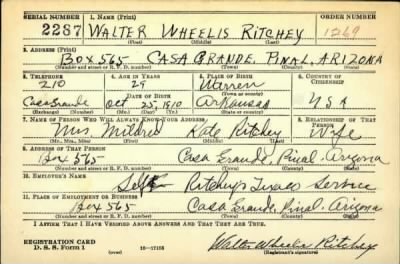 SERIAL NUMBER 1. NAME (Print) ORDER NUMBER
2287 WALTER WHEELIS RITCHEY 1269
(First) (Middle) (Last)
2. ADDRESS (Print)
BOX 565 CASA GRANDE, PINAL, ARIZONA
(Number and street or R. F. D. number) (Town) (County) (State)
3. TELEPHONE 4. AGE IN YEARS 5. PLACE OF BIRTH 6. COUNTRY OF CITIZENSHIP
210 29
DATE OF BIRTH (Town or county)
Casa Grande Oct 25, 1910 Arkansas USA
(Exchange) (Number) (Mo.) (Day) (Yr.) (State or country)
7. NAME OF PERSON WHO WILL ALWAYS KNOW YOUR ADDRESS 8. RELATIONSHIP OF THAT PERSON
Mrs. Mildred Kate Ritchey Wife
(Mr., Mrs., Miss) (First) (Middle) (Last)
9. ADDRESS OF THAT PERSON
Box 565 Casa Grande, Pinal, Arizona
(Number and street or R. F. D. number) (Town) (County) (State)
10. EMPLOYER'S NAME
Self Ritcheys Texaco Service
11. PLACE OF EMPLOYMENT OR BUSINESS
Box 565 Casa Grande, Pinal, Arizona
(Number and street or R. F. D. number) (Town) (County) (State)
I AFFIRM THAT I HAVE VERIFIED ABOVE ANSWERS AND THAT THEY ARE TRUE.
REGISTRATION CARD Walter Wheelis Ritchey
D. S. S. Form 1 (over) 16—17105 (Registrant's signature)